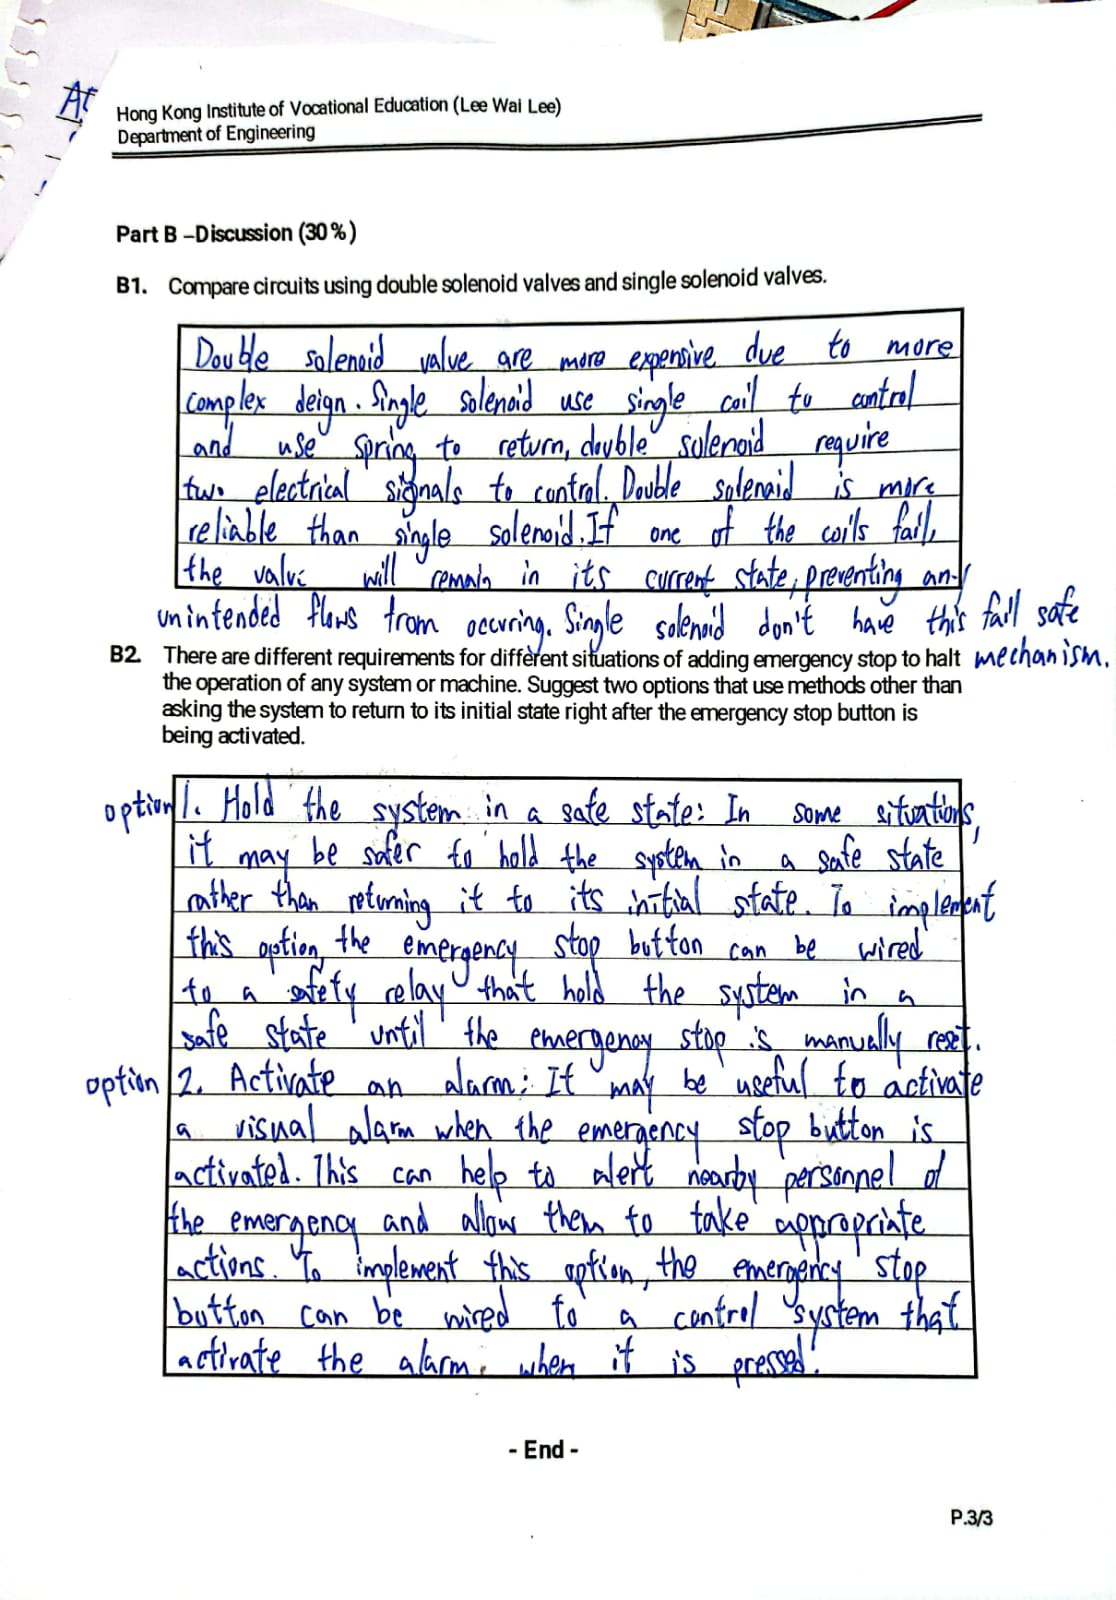 At
Hong Kong Institute of Vocational Education (Lee Wai Lee)
Department of Engineering
Part B –Discussion (30%)
B1. Compare circuits using double solenoid valves and single solenoid valves.
Double solenoid valve are more expensive due to more
complex deign. Single solenoid use single coil to control
and use spring to return, double solenoid require
two electrical signals to control. Double solenoid is more
reliable than single solenoid. If one of the coils fail,
the valve will remain in its current state, preventing any
unintended flows from occuring. Single solenoid don't have this fail safe
mechanism.
B2. There are different requirements for different situations of adding emergency stop to halt
the operation of any system or machine. Suggest two options that use methods other than
asking the system to return to its initial state right after the emergency stop button is
being activated.
option 1. Hold the system in a safe state: In some situations,
it may be safer to hold the system in a safe state
rather than returning it to its initial state. To implement
this option, the emergency stop button can be wired
to a safety relay that hold the system in a
safe state until the emergency stop is manually reset.
option 2. Activate an alarm: It may be useful to activate
a visual alarm when the emergency stop button is
activated. This can help to alert nearby personnel of
the emergency and allow them to take appropriate
actions. To implement this option, the emergency stop
button can be wired to a control system that
activate the alarm. when it is pressed.
- End -
P.3/3